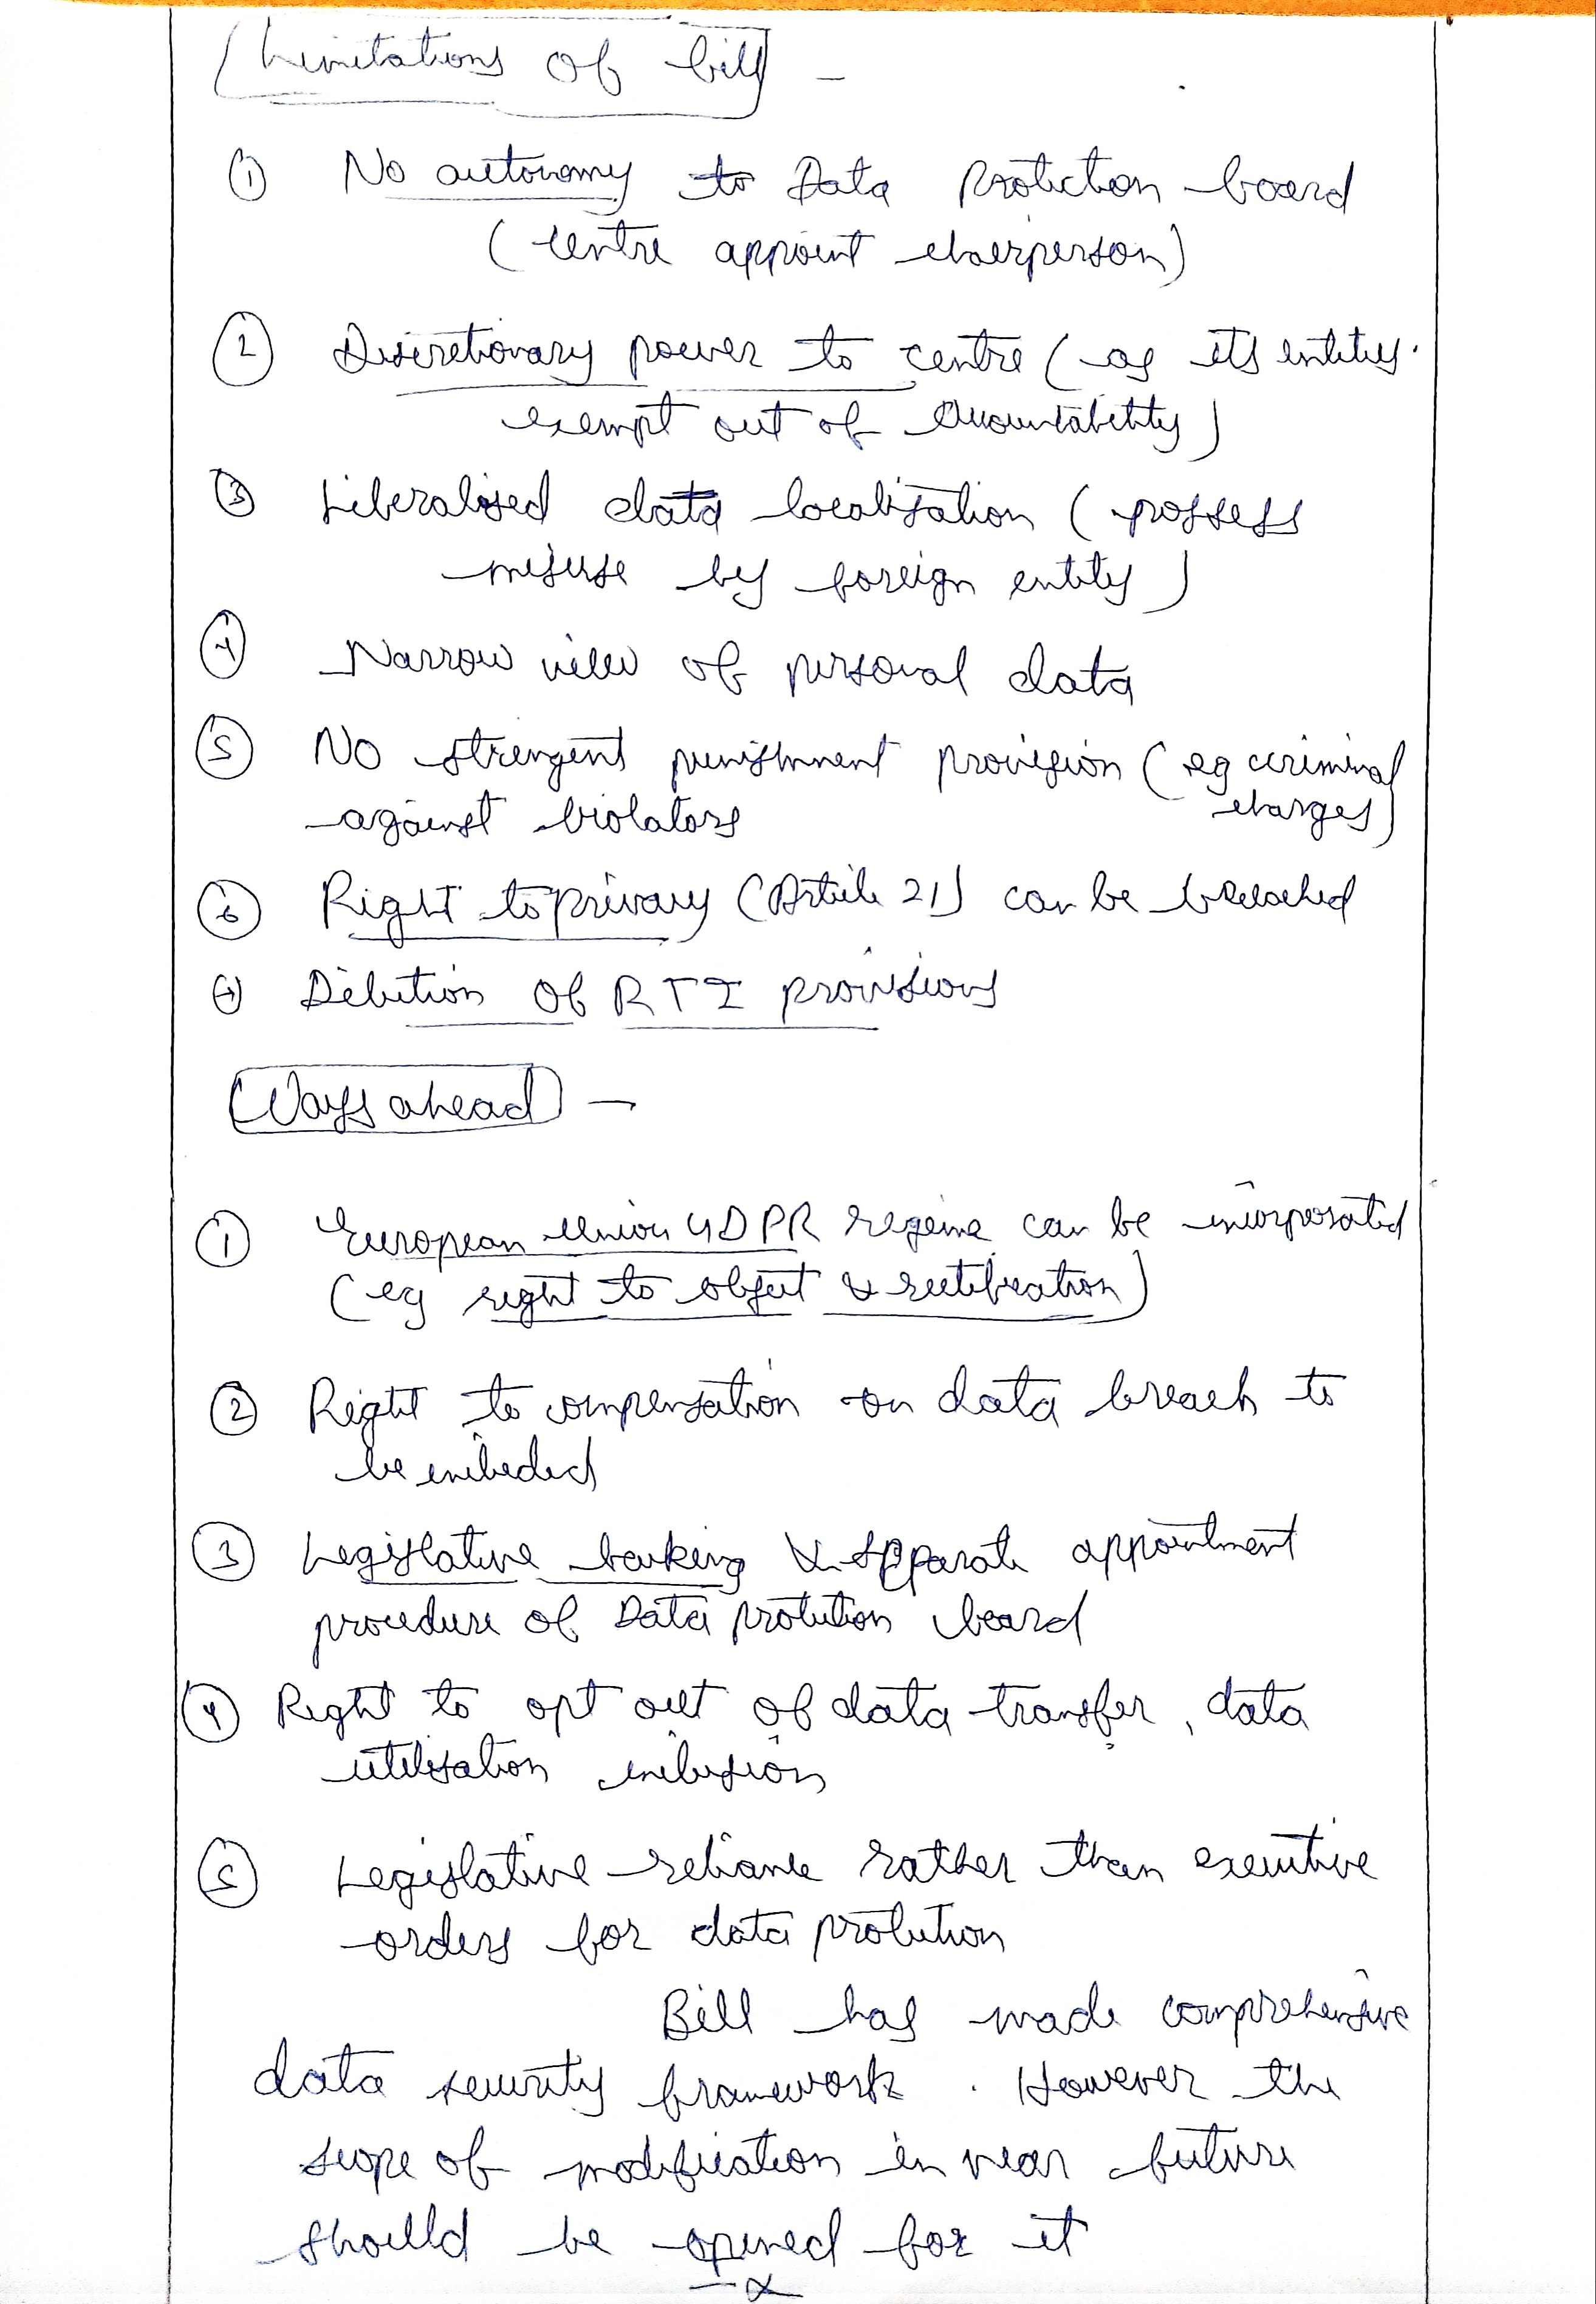 Limitations of bill -
① No autonomy to Data Protection board
(centre appoint chairperson)
② Discretionary power to centre (as its entities
exempt out of accountability)
③ Liberalised data localisation (possess
misuse by foreign entity)
④ Narrow view of personal data
⑤ No stringent punishment provision (eg criminal
charges)
against violators
⑥ Right to privacy (Article 21) can be breached
⑦ Dilution of RTI provisions
Ways ahead -
① European Union GDPR regime can be incorporated
(eg right to object & rectification)
② Right to compensation on data breach to
be included
③ Legislative backing & separate appointment
procedure of Data protection board
④ Right to opt out of data transfer, data
utilisation inclusion
⑤ Legislative reliance rather than executive
orders for data protection
Bill has made comprehensive
data security framework. However the
scope of modification in near future
should be opened for it